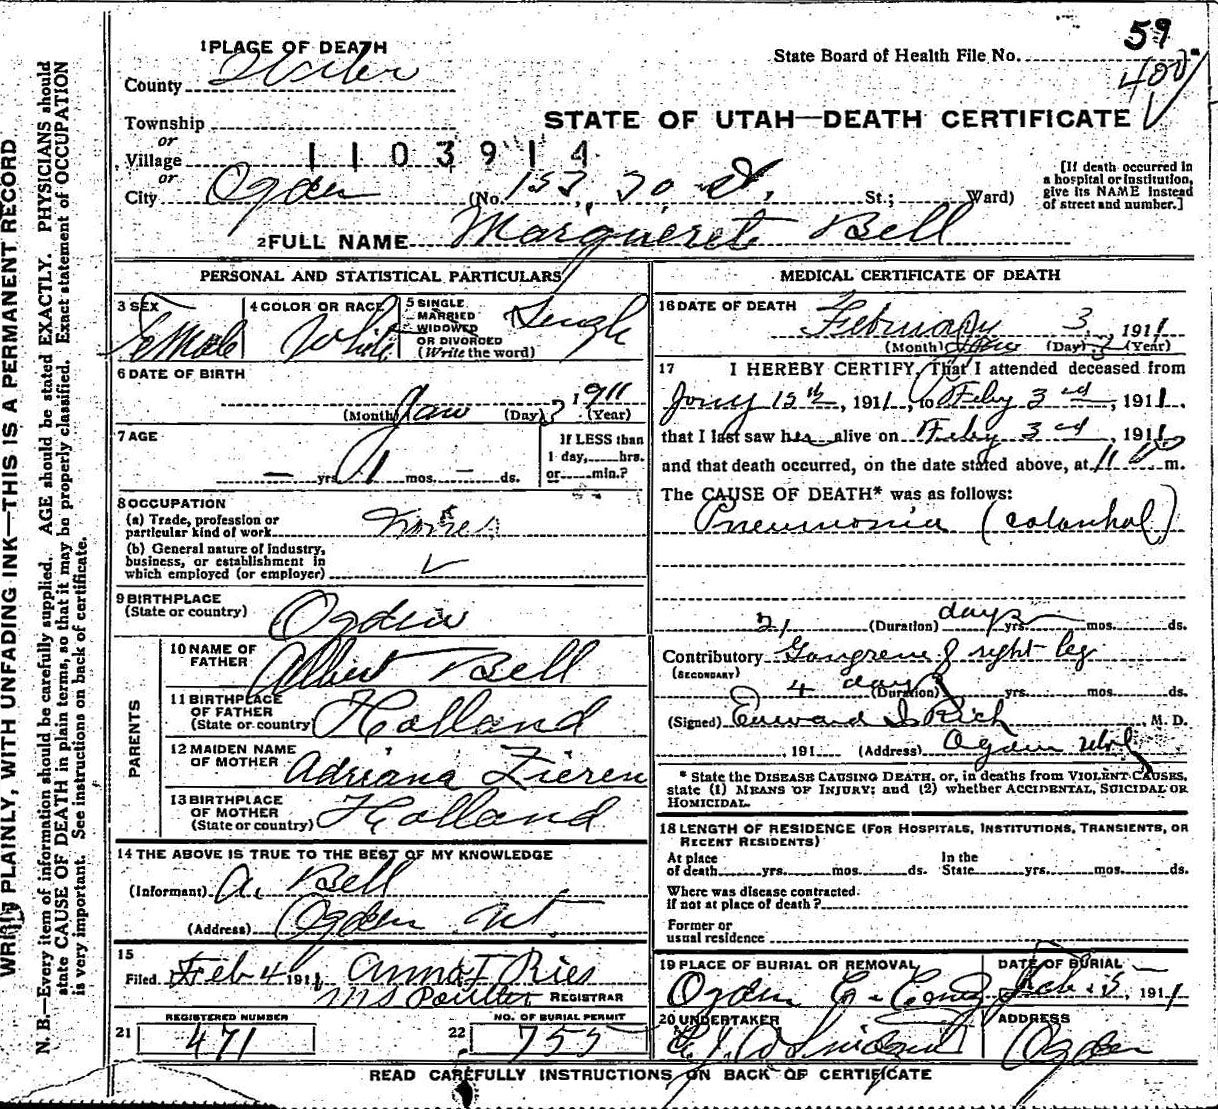 59
State Board of Health File No.
400
1 PLACE OF DEATH
County Weber
STATE OF UTAH—DEATH CERTIFICATE
Township
or
Village
1103914
or
City Ogden (No. 153, 20 St, St.; Ward)
[If death occurred in
a hospital or institution,
give its NAME instead
of street and number.]
2 FULL NAME Margueret Bell
PERSONAL AND STATISTICAL PARTICULARS
3 SEX
Female
4 COLOR OR RACE
White
5 SINGLE
MARRIED
WIDOWED
OR DIVORCED
(Write the word)
Single
6 DATE OF BIRTH
Jan 3 1911
(Month) (Day) (Year)
7 AGE
— yrs. 1 mos. — ds.
If LESS than
1 day, hrs.
or min.?
8 OCCUPATION
(a) Trade, profession or
particular kind of work None
(b) General nature of industry,
business, or establishment in
which employed (or employer)
9 BIRTHPLACE
(State or country) Ogden
PARENTS
10 NAME OF
FATHER Albert Bell
11 BIRTHPLACE
OF FATHER
(State or country) Holland
12 MAIDEN NAME
OF MOTHER Adriana Zieren
13 BIRTHPLACE
OF MOTHER
(State or country) Holland
14 THE ABOVE IS TRUE TO THE BEST OF MY KNOWLEDGE
(Informant) A. Bell
(Address) Ogden Ut.
15
Filed Feb 4 1911 Anna F Ries
Ms Poulter REGISTRAR
REGISTERED NUMBER
21 471
NO. OF BURIAL PERMIT
22 755
MEDICAL CERTIFICATE OF DEATH
16 DATE OF DEATH
February 3, 1911
(Month) (Day) (Year)
17 I HEREBY CERTIFY, That I attended deceased from
Jany 15th, 1911, to Feby 3rd, 1911.
that I last saw her alive on Feby 3rd, 1911
and that death occurred, on the date stated above, at 11 m.
The CAUSE OF DEATH* was as follows:
Pneumonia (catarrhal)
21 (Duration) days yrs. mos. ds.
Contributory Gangrene of right leg
(SECONDARY)
4 days (Duration) yrs. mos. ds.
(Signed) Edward I. Rich, M. D.
, 191 (Address) Ogden Utah
* State the DISEASE CAUSING DEATH, or, in deaths from VIOLENT CAUSES,
state (1) MEANS OF INJURY; and (2) whether ACCIDENTAL, SUICIDAL OR
HOMICIDAL.
18 LENGTH OF RESIDENCE (FOR HOSPITALS, INSTITUTIONS, TRANSIENTS, OR
RECENT RESIDENTS)
At place
of death yrs. mos. ds.
In the
State yrs. mos. ds.
Where was disease contracted,
if not at place of death?
Former or
usual residence
19 PLACE OF BURIAL OR REMOVAL
Ogden C.
DATE OF BURIAL
Feb. 5, 1911
20 UNDERTAKER
ADDRESS
Ogden
READ CAREFULLY INSTRUCTIONS ON BACK OF CERTIFICATE
WRITE PLAINLY, WITH UNFADING INK—THIS IS A PERMANENT RECORD
N. B.—Every item of information should be carefully supplied. AGE should be stated EXACTLY. PHYSICIANS should
state CAUSE OF DEATH in plain terms, so that it may be properly classified. Exact statement of OCCUPATION
is very important. See instructions on back of certificate.